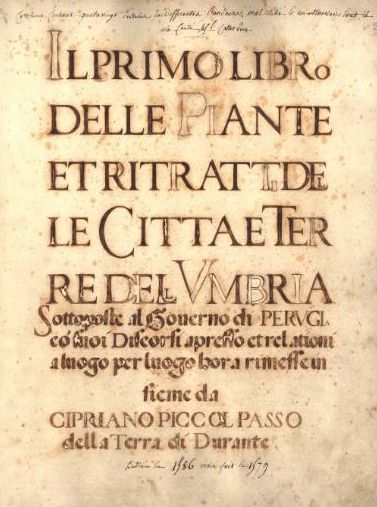 IL PRIMO LIBRO
DELLE PIANTE
ET RITRATTI DE
LE CITTA E TER
RE DELL VMBRIA
Sottoposte al Governo di PERVGI.
cō suoi Discorsi apresso et relationi
a luogo per luogo hora rimesse in
sieme da
CIPRIANO PICCOLPASSO
della Terra di Durante
1586